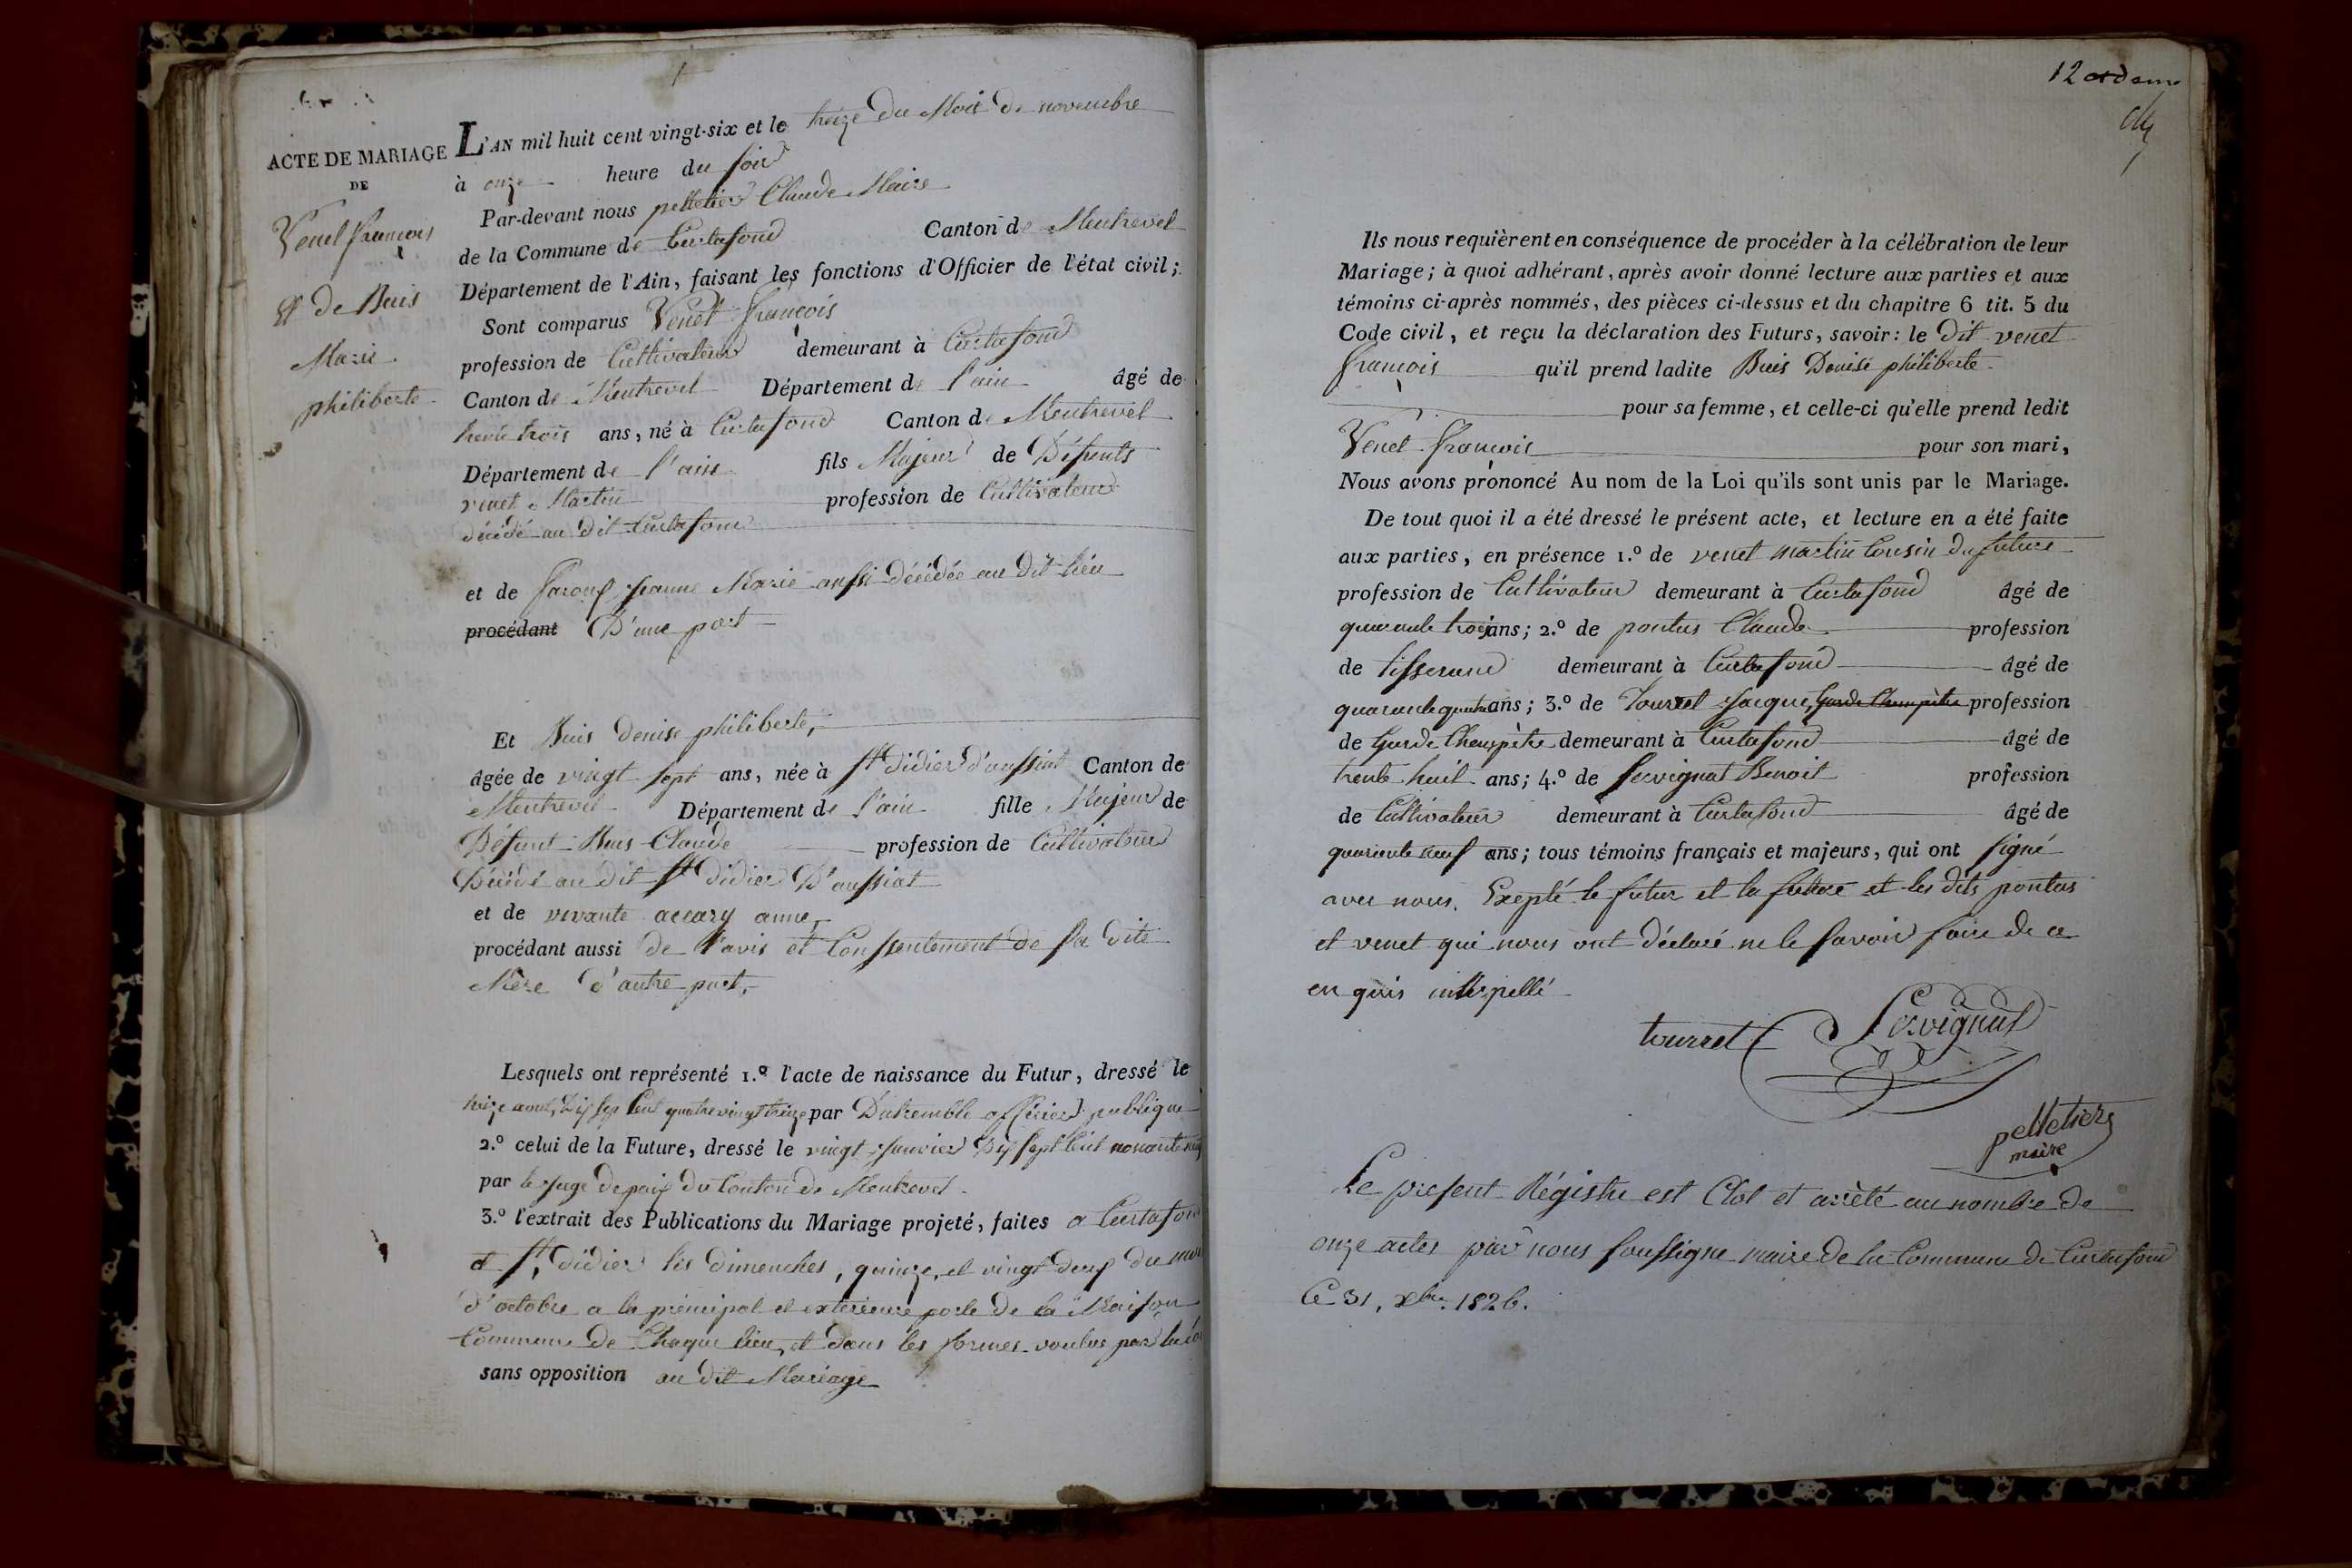 ACTE DE MARIAGE
DE
Venet françois
et de Buis
Marie
philiberte
L'AN mil huit cent vingt-six et le treize du Mois de novembre
à onze heure du soir
Par-devant nous pelletier Claude Maire
de la Commune de Curtafond Canton de Montrevel
Département de l'Ain, faisant les fonctions d'Officier de l'état civil;
Sont comparus Venet françois
profession de Cultivateur demeurant à Curtafond
Canton de Montrevel Département de l'ain âgé de
trente trois ans, né à Curtafond Canton de Montrevel
Département de l'ain fils Majeur de Défunts
venet Martin profession de Cultivateur
décédé au dit Curtafond
et de Jeanne Marie aussi décédée au dit lieu
procédant D'une part
Et Buis denise philiberte,
âgée de vingt sept ans, née à St didier d'aussiat Canton de
Montrevel Département de l'ain fille Majeur de
Défunt Buis Claude profession de Cultivateur
Décédé au dit St didier D'aussiat
et de vivante accary anne,
procédant aussi de l'avis et Conssentement de sa dite
Mère d'autre part,
Lesquels ont représenté 1.º l'acte de naissance du Futur, dressé le
treize aout, Dix sep Cent quatrevingt treize par Dutremble officier publique
2.º celui de la Future, dressé le vingt Janvier Dix sept Cent nonante
par le Juge de paix du Canton de Montrevel
3.º l'extrait des Publications du Mariage projeté, faites a Curtafond
et St, didier les dimenches, quinze, et vingt deux du
d'octobre a la prémipal et exterieure porte de la Maison
Commune de Chaque lieu, et dans les formes voulus par la
sans opposition au dit Mariage
12 et
Ils nous requièrent en conséquence de procéder à la célébration de leur
Mariage; à quoi adhérant, après avoir donné lecture aux parties et aux
témoins ci-après nommés, des pièces ci-dessus et du chapitre 6 tit. 5 du
Code civil, et reçu la déclaration des Futurs, savoir: le Dit venet
françois qu'il prend ladite Buis Denise philiberte
pour sa femme, et celle-ci qu'elle prend ledit
Venet françois pour son mari,
Nous avons prononcé Au nom de la Loi qu'ils sont unis par le Mariage.
De tout quoi il a été dressé le présent acte, et lecture en a été faite
aux parties, en présence 1.º de venet martin Cousin du future
profession de Cultivateur demeurant à Curtafond âgé de
quarante trois ans; 2.º de pontus Claude profession
de tisserand demeurant à Curtafond âgé de
quarante quatre ans; 3.º de Tourret Jacque, Garde Champètre profession
de Garde Champètre demeurant à Curtafond âgé de
trente huit ans; 4.º de Servignat Benoit profession
de Cultivateur demeurant à Curtafond âgé de
quarante neuf ans; tous témoins français et majeurs, qui ont signé
avec nous. Exepté le futur et la future et les dits pontus
et venet qui nous ont déclaré ne le savoir faire de ce
en quis interpellé
tourret Servignat
pelletier
maire
Le present Régistre est Clot et arrèté au nombre de
onze actes par nous soussigne maire de la Commune de Curtafond
Ce 31, xbre 1826.